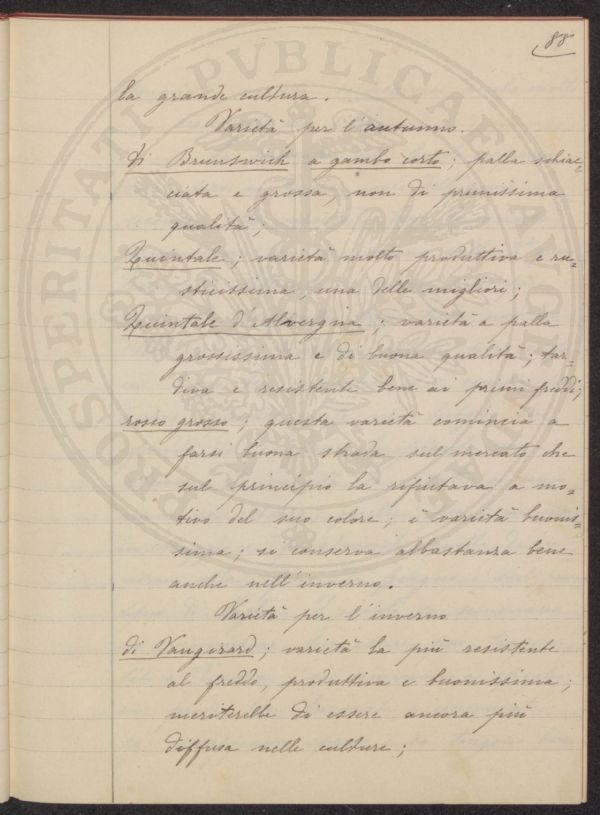 88
la grande cultura.
Varietà per l'autunno.
di Brunswich a gambo corto; palla schiac=
ciata e grossa, non di primissima
qualità;
Quintale; varietà molto produttiva e ru=
sticissima, una delle migliori;
Quintale d'Alvergnia; varietà a palla
grossissima e di buona qualità; tar=
diva e resistente bene ai primi freddi;
rosso grosso; questa varietà comincia a
farsi buona strada sul mercato che
sul principio la rifiutava a mo=
tivo del suo colore; è varietà buonis=
sima; si conserva abbastanza bene
anche nell'inverno.
Varietà per l'inverno
di Vaugirard; varietà la più resistente
al freddo, produttiva e buonissima;
meriterebbe di essere ancora più
diffusa nelle culture;
PROSPERITATI PVBLICAE